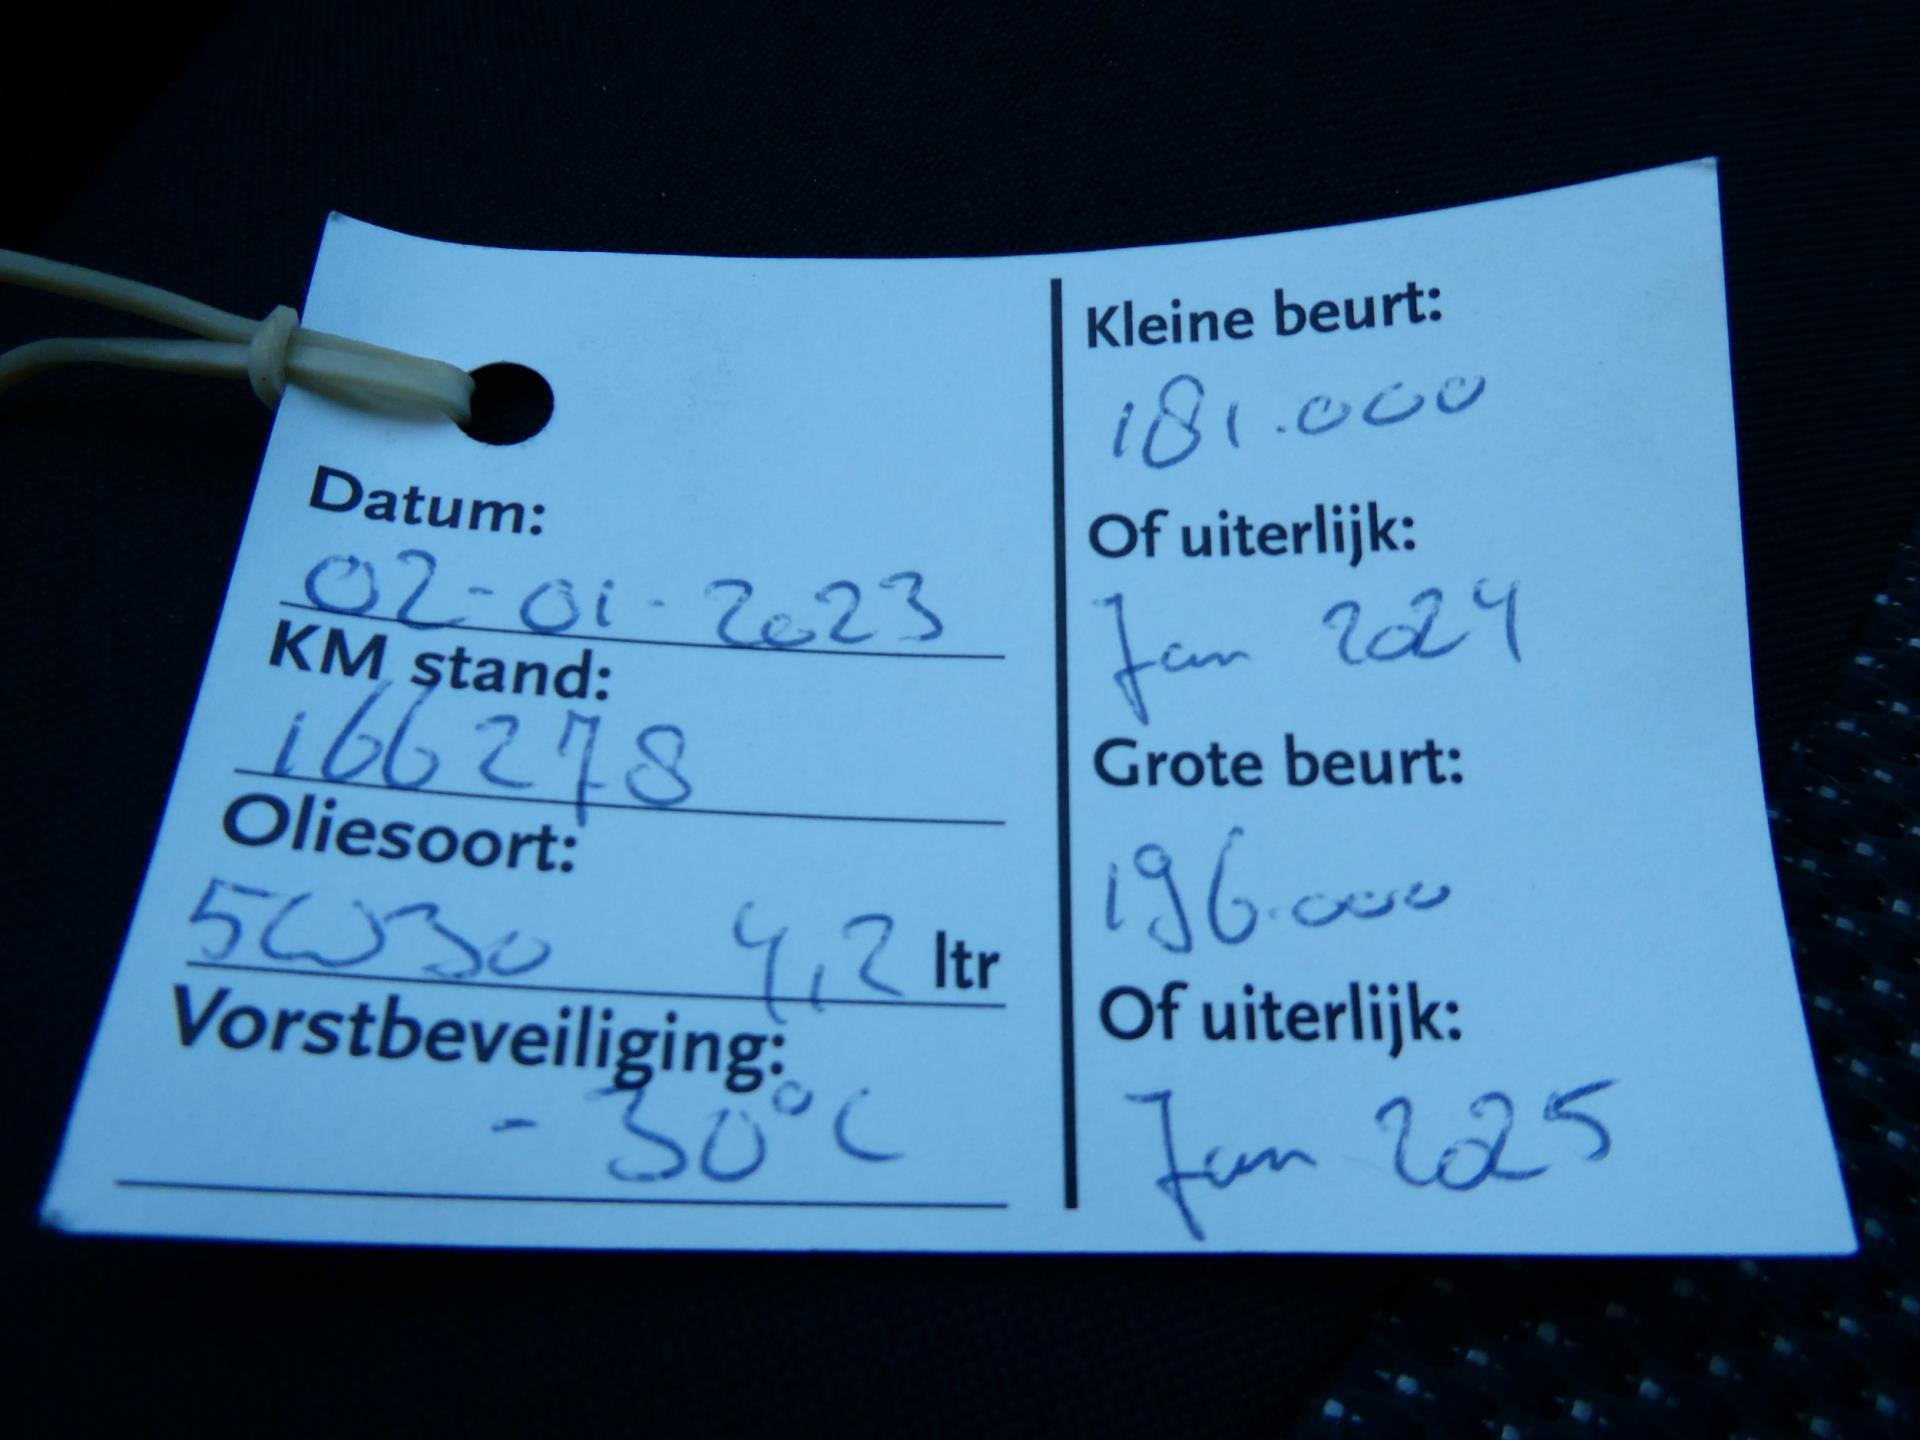 Datum:
02-01-2023
KM stand:
166278
Oliesoort:
5W30 4,2 ltr
Vorstbeveiliging:
- 30°C
Kleine beurt:
181.000
Of uiterlijk:
Jan 2024
Grote beurt:
196.000
Of uiterlijk:
Jan 2025